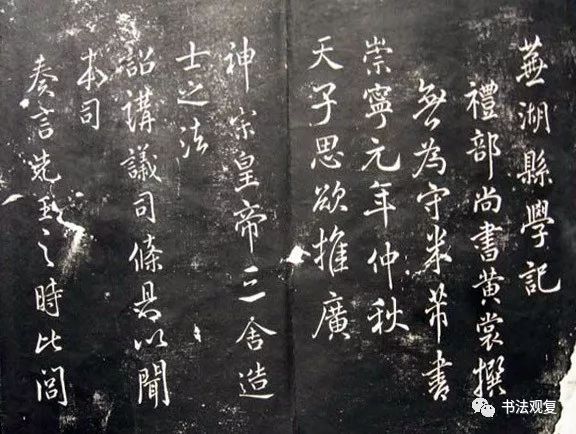 蕪湖縣學記
禮部尚書黃裳撰
無為守米芾書
崇寧元年仲秋
天子思欲推廣
神宗皇帝三舍造
士之法
詔講議司條具以聞
本司
奏言先王之時比閭
书法观复